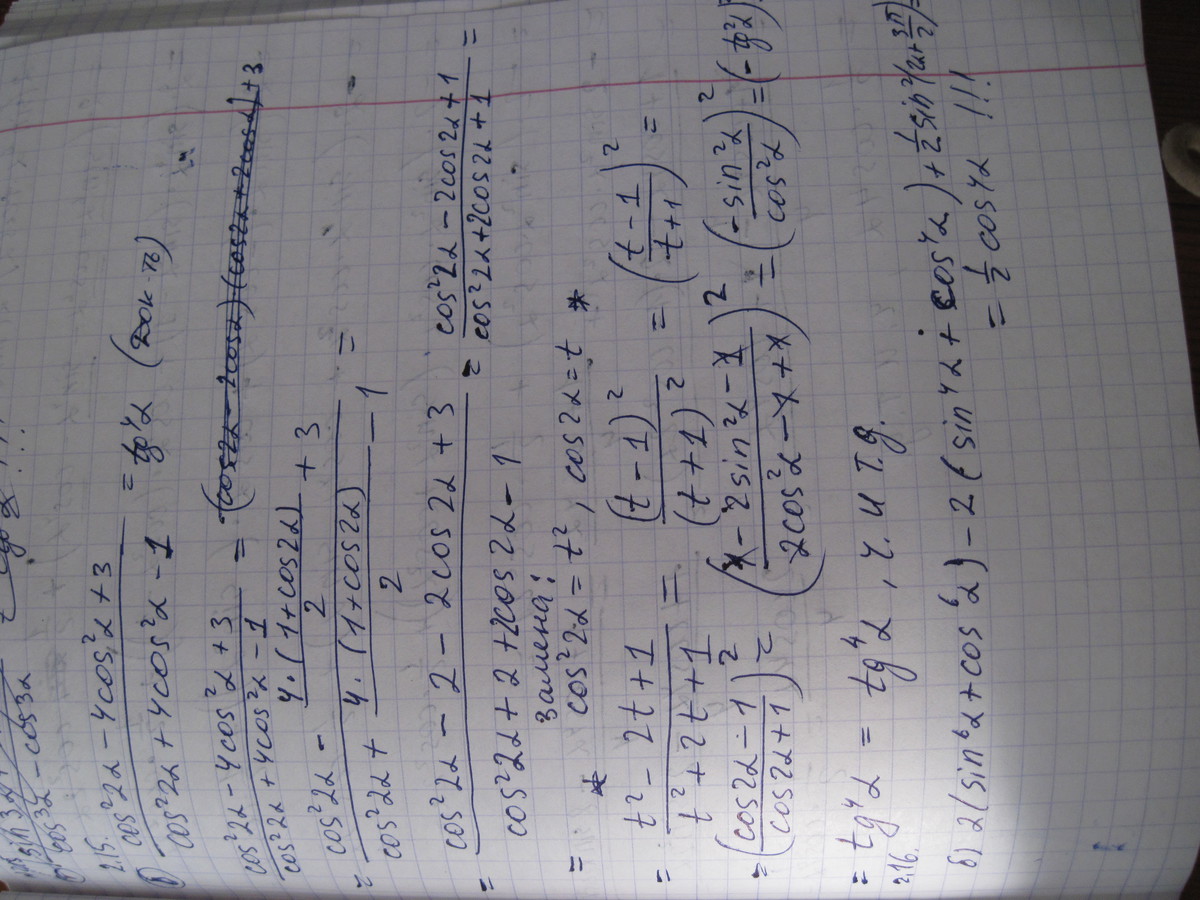 cos3α - cos3α
2.15.
в) (cos²2α - 4cos²α + 3) / (cos²2α + 4cos²α - 1) = tg⁴α (док-ть)
(cos²2α - 4cos²α + 3) / (cos²2α + 4cos²α - 1) =
= (cos²2α - 4·(1+cos2α)/2 + 3) / (cos²2α + 4·(1+cos2α)/2 - 1) =
= (cos²2α - 2 - 2cos2α + 3) / (cos²2α + 2 + 2cos2α - 1) = (cos²2α - 2cos2α + 1) / (cos²2α + 2cos2α + 1) =
замена:
= * cos²2α = t², cos2α = t *
= (t² - 2t + 1) / (t² + 2t + 1) = (t - 1)² / (t + 1)² = ((t - 1) / (t + 1))² =
= ((cos2α - 1) / (cos2α + 1))² = ((1 - 2sin²α - 1) / (2cos²α - 1 + 1))² = (-sin²α / cos²α)² = (-tg²α)²
= tg⁴α = tg⁴α, ч. и т.д.
2.16.
б) 2(sin⁶α + cos⁶α) - 2(sin⁴α + cos⁴α) + ½sin²(2α + 3π/2) =
= ½ cos4α !!!